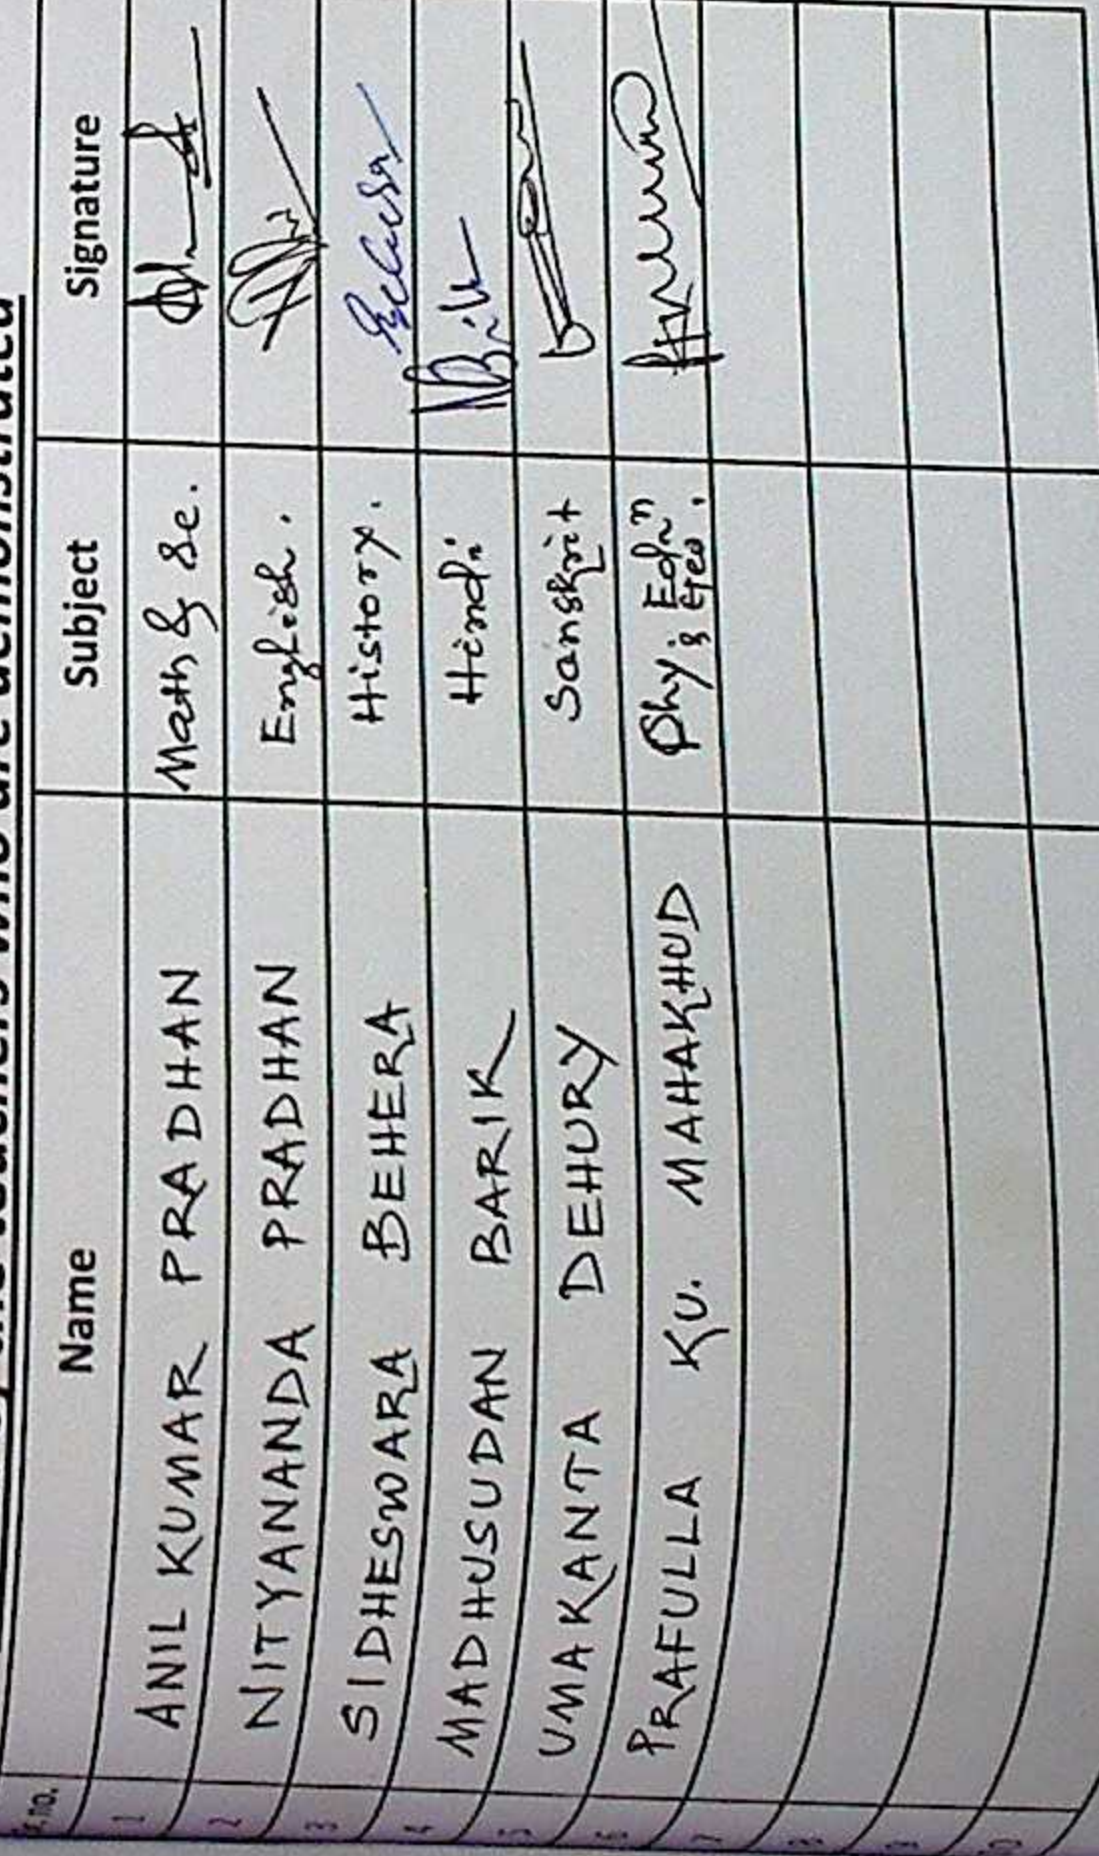 teachers who are demonstrated
Sr. no. Name Subject Signature
1 ANIL KUMAR PRADHAN Math & Sc.
2 NITYANANDA PRADHAN English.
3 SIDHESWARA BEHERA History.
4 MADHUSUDAN BARIK Hindi
5 UMAKANTA DEHURY Sanskrit
6 PRAFULLA KU. MAHAKHUD Phy; Edn
7
8
9
10